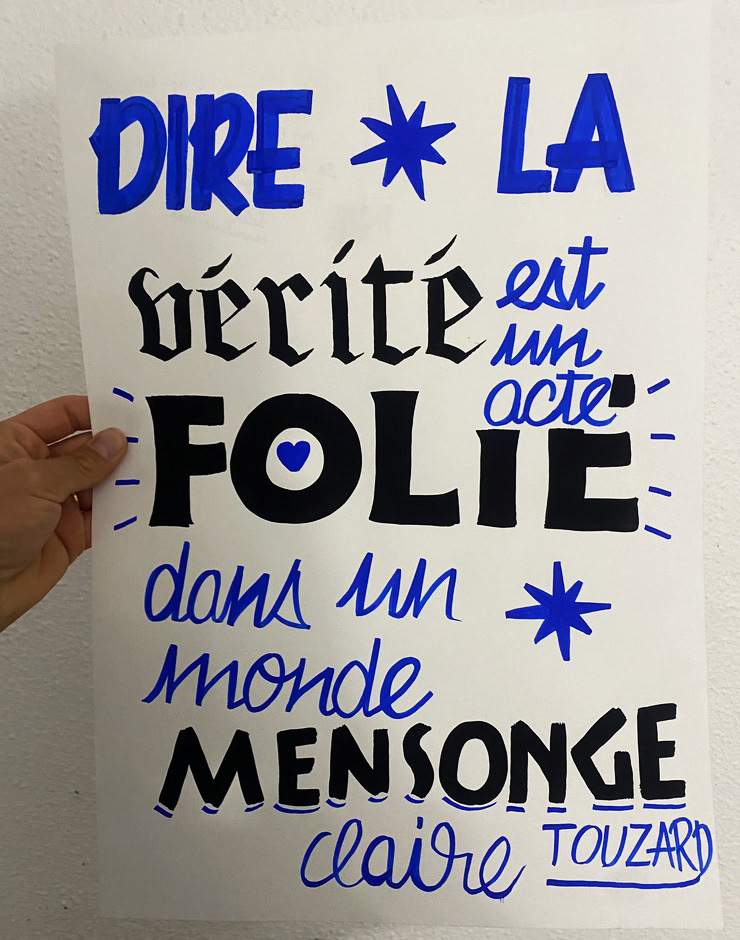 DIRE LA
vérité est
un
acte
FOLIE
dans un
monde
MENSONGE
claire TOUZARD